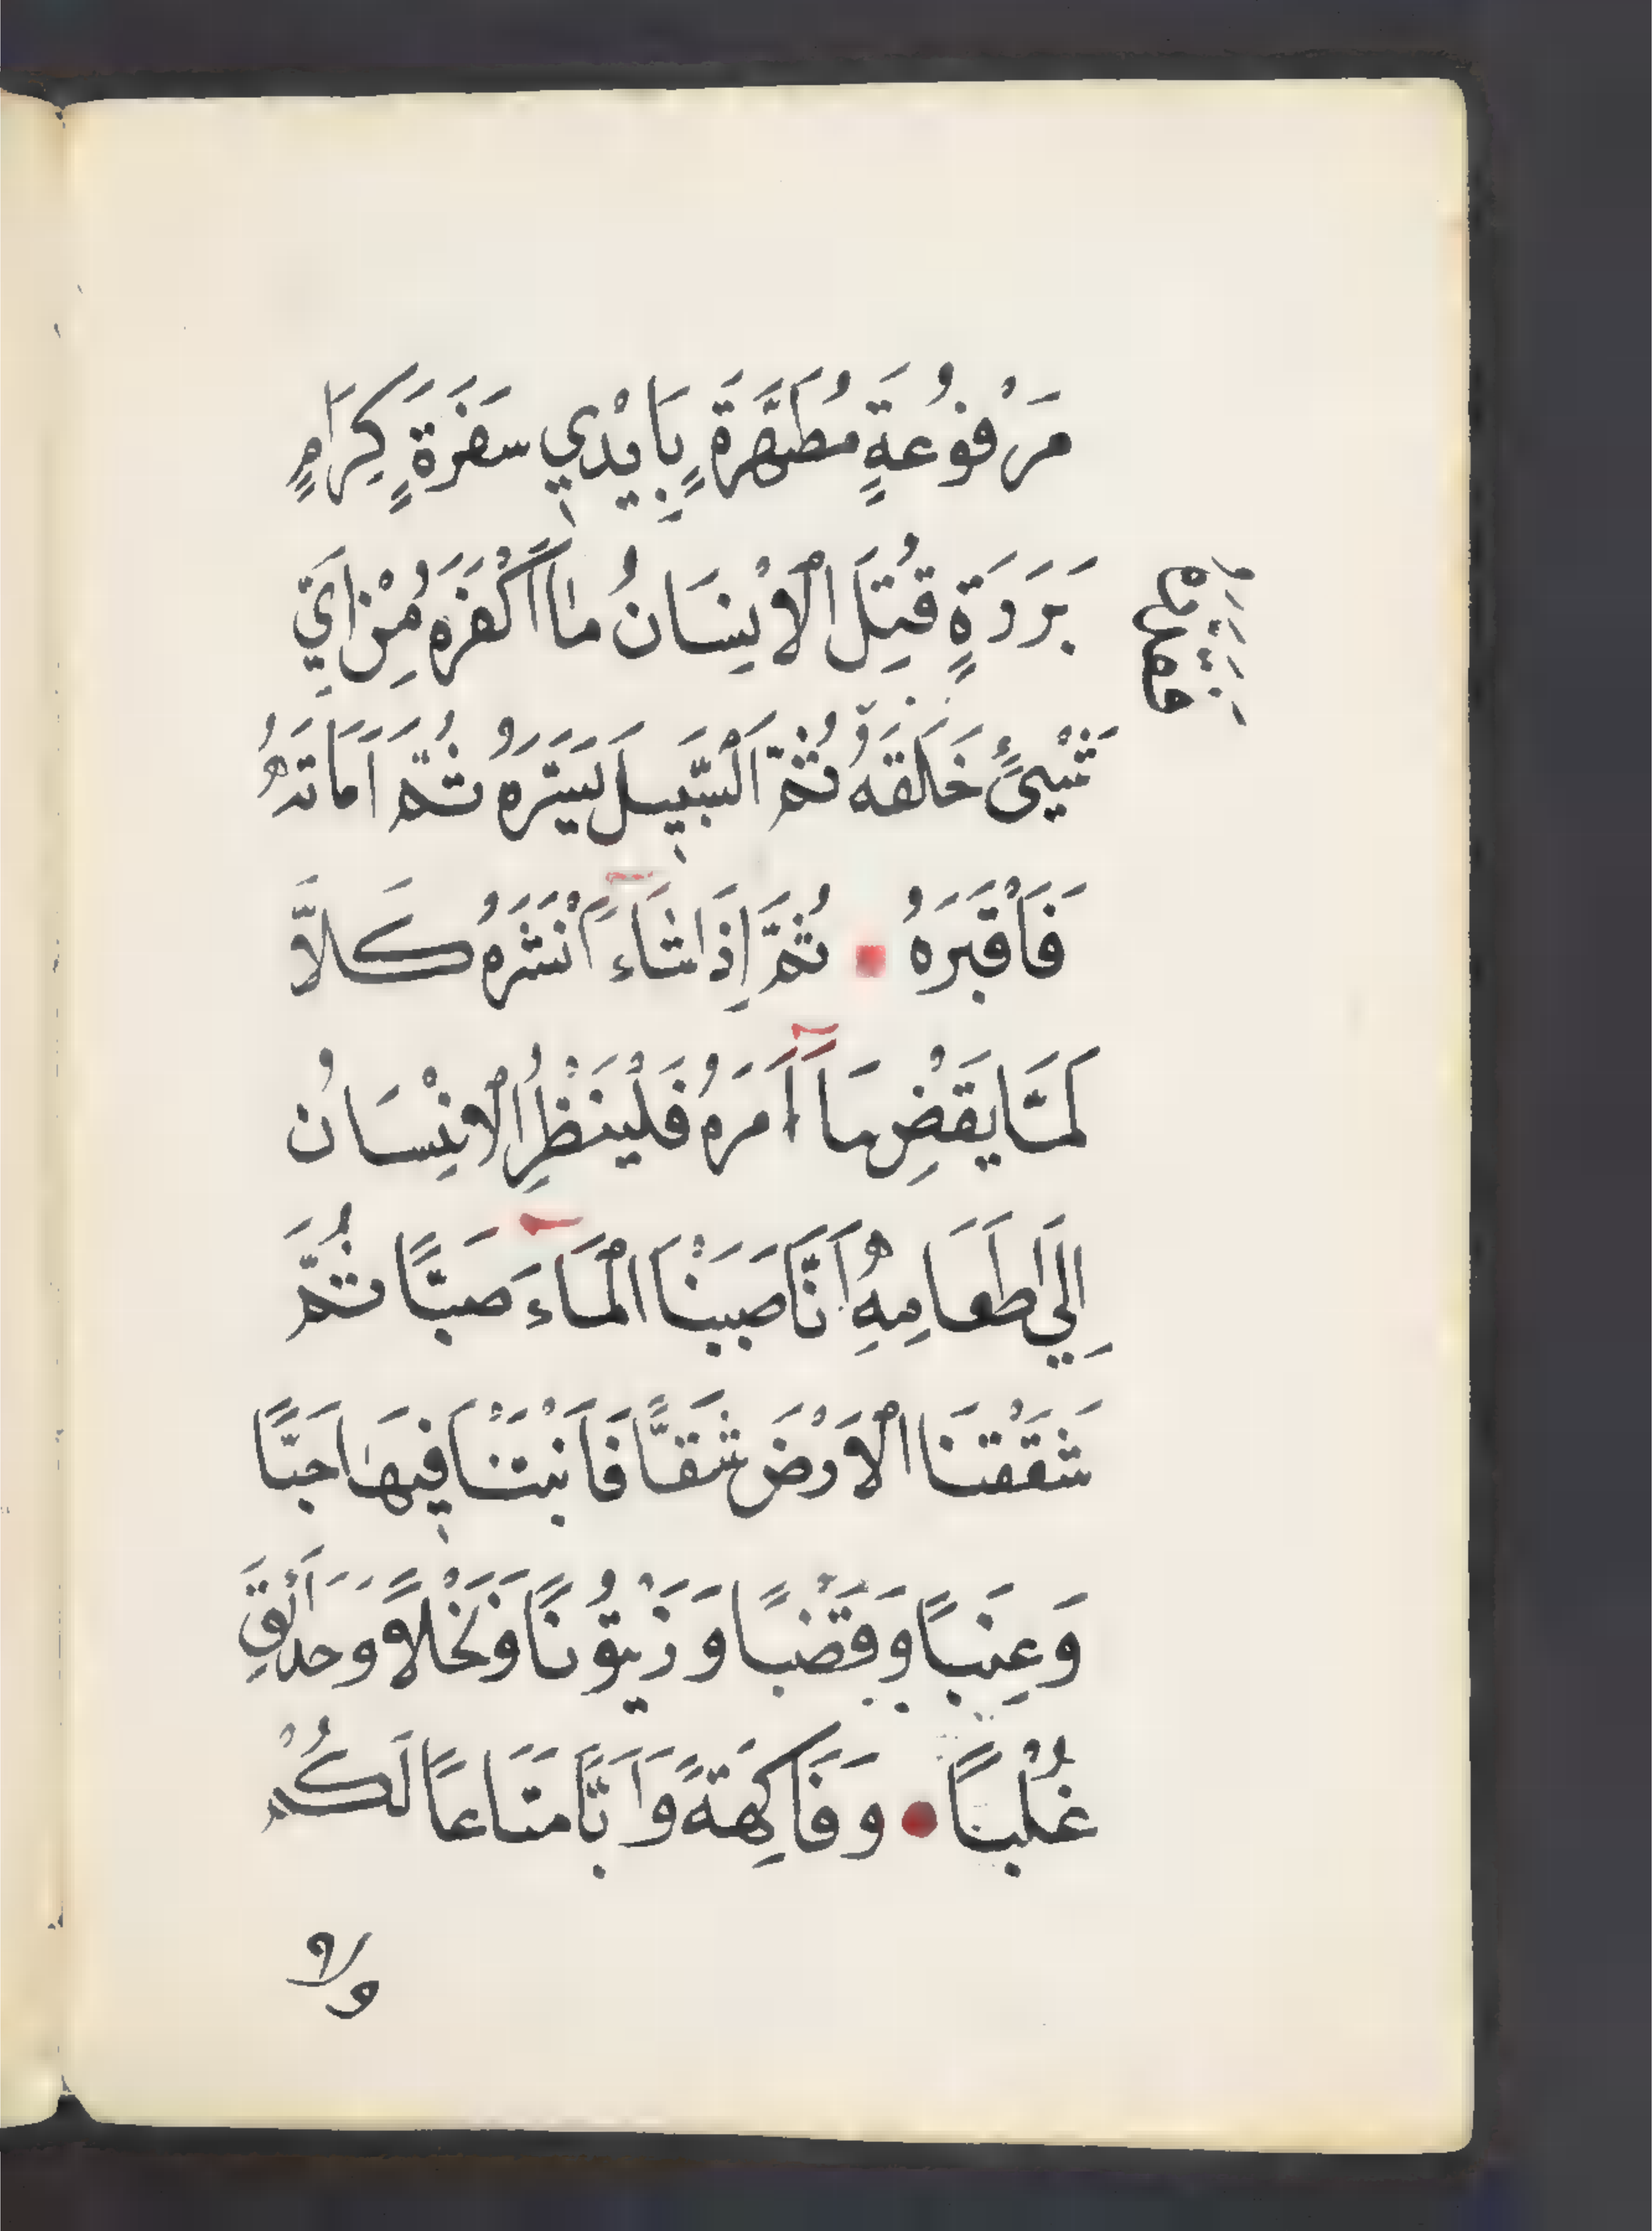 مَرْفُوعَةٍ مُطَهَّرَةٍ بِاَيْدِي سَفَرَةٍ كِرَامٍ
بَرَرَةٍ قُتِلَ الْاِنْسَانُ مَا اَكْفَرَهُ مِنْ اَيِّ
شَيْئٍ خَلَقَهُ ثُمَّ السَّبِيلَ يَسَّرَهُ ثُمَّ اَمَاتَهُ
فَاَقْبَرَهُ ثُمَّ اِذَا شَاءَ اَنْشَرَهُ كَلاَّ
لَمَّا يَقْضِ مَا اَمَرَهُ فَلْيَنْظُرِ الْاِنْسَانُ
اِلَي طَعَامِهِ اَنَّا صَبَبْنَا الْمَاءَ صَبًّا ثُمَّ
شَقَقْنَا الْاَرْضَ شَقًّا فَاَنْبَتْنَا فِيهَا حَبًّا
وَعِنَبًا وَقَضْبًا وَزَيْتُونًا وَنَخْلاً وَحَدَائِقَ
غُلْبًا وَفَاكِهَةً وَاَبًّا مَتَاعًا لَكُمْ